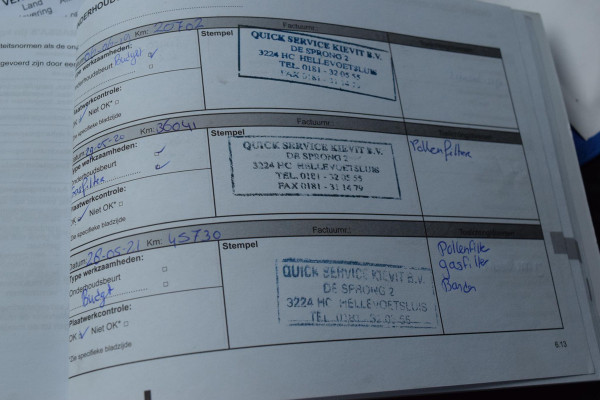 Land
teitsnormen als de oru
gevoerd zijn door een
ONDERHOUD
Km: 20702
Factuurnr.:
Type werkzaamheden:
Onderhoudsbeurt Budget
Plaatwerkcontrole:
OK Niet OK*
De specifieke bladzijde
Stempel
QUICK SERVICE KIEVIT B.V.
DE SPRONG 2
3224 HC HELLEVOETSLUIS
TEL. 0181 - 32 05 55
FAX 0181 - 31 14 79
Datum: 29-05-20 Km: 36041
Factuurnr.:
Type werkzaamheden:
Onderhoudsbeurt
Plaatwerkcontrole:
OK Niet OK*
De specifieke bladzijde
Stempel
QUICK SERVICE KIEVIT B.V.
DE SPRONG 2
3224 HC HELLEVOETSLUIS
TEL. 0181 - 32 05 55
FAX 0181 - 31 14 79
Pollenfilter
Datum: 28-05-21 Km: 45730
Factuurnr.:
Type werkzaamheden:
Onderhoudsbeurt
Budget
Plaatwerkcontrole:
OK Niet OK*
De specifieke bladzijde
Stempel
QUICK SERVICE KIEVIT B.V.
DE SPRONG 2
3224 HC HELLEVOETSLUIS
TEL. 0181 - 32 05 55
Pollenfilter
gasfilter
Banden
6.13